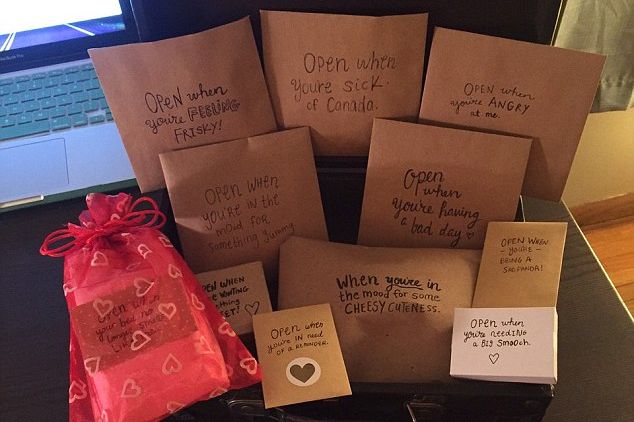 MacBook Pro
OPEN when
you're FEELING
FRISKY!
OPEN when
you're SICK
of Canada.
OPEN when
you're ANGRY
at me.
OPEN WHEN
you're in the
mood for
something yummy
Open
when
you're having
a bad day
OPEN WHEN
- YOU'RE -
BEING A
SAD PANDA!
OPEN WHEN
WANTING
something
SWEET!
When you're in
the mood for some
CHEESY CUTENESS.
Open when
your bed no
longer smells
like me
OPEN when
you're IN need
OF A REMINDER.
OPEN when
you're NEEDING
A BIG SMOOCH.